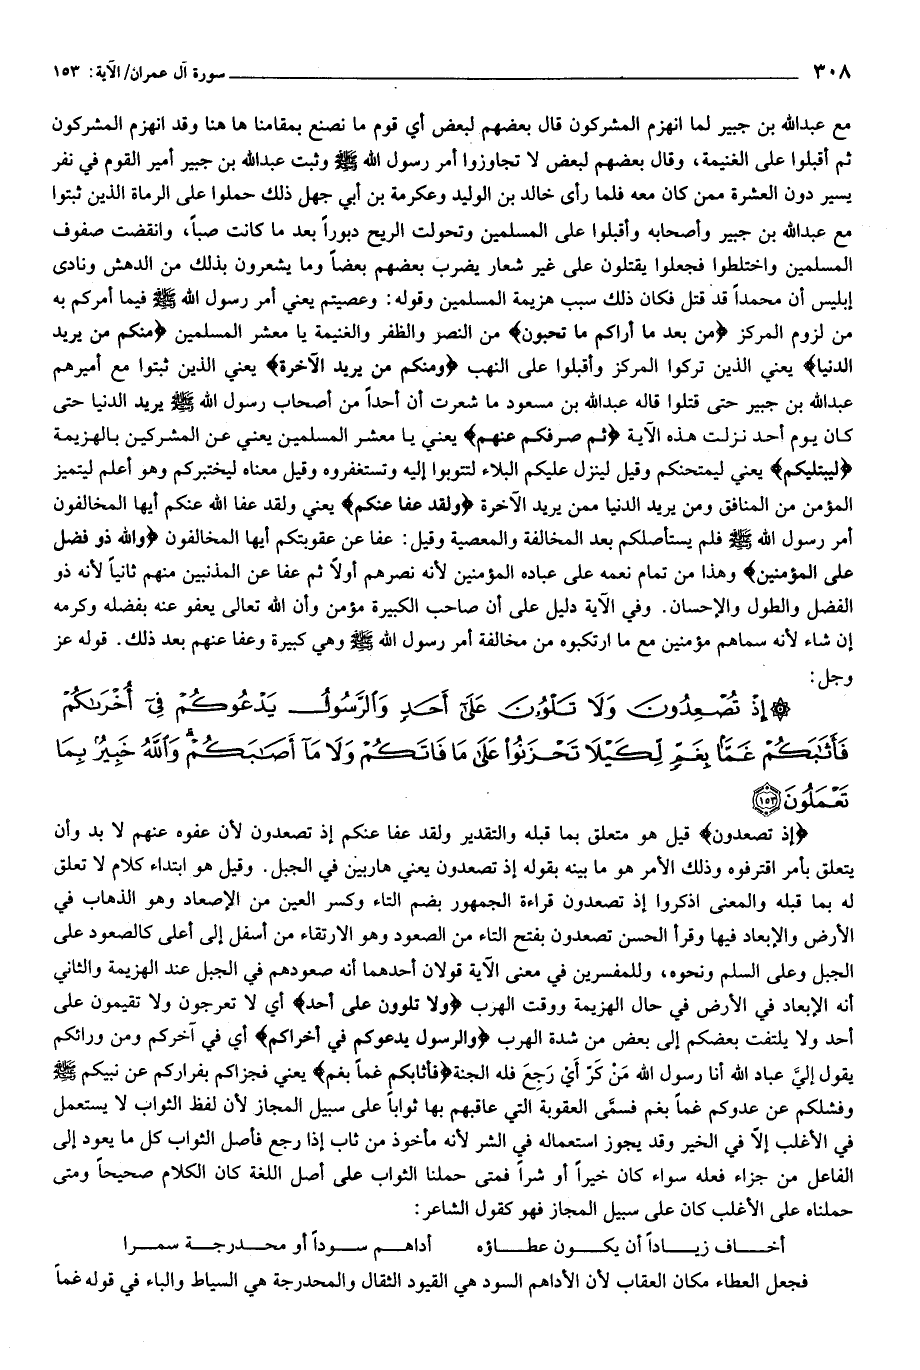 ٣٠٨ سورة آل عمران/ الآية: ١٥٣
مع عبدالله بن جبير لما انهزم المشركون قال بعضهم لبعض أي قوم ما نصنع بمقامنا ها هنا وقد انهزم المشركون
ثم أقبلوا على الغنيمة، وقال بعضهم لبعض لا تجاوزوا أمر رسول الله ﷺ وثبت عبدالله بن جبير أمير القوم في نفر
يسير دون العشرة ممن كان معه فلما رأى خالد بن الوليد وعكرمة بن أبي جهل ذلك حملوا على الرماة الذين ثبتوا
مع عبدالله بن جبير وأصحابه وأقبلوا على المسلمين وتحولت الريح دبوراً بعد ما كانت صباً، وانقضت صفوف
المسلمين واختلطوا فجعلوا يقتلون على غير شعار يضرب بعضهم بعضاً وما يشعرون بذلك من الدهش ونادى
إبليس أن محمداً قد قتل فكان ذلك سبب هزيمة المسلمين وقوله: وعصيتم يعني أمر رسول الله ﷺ فيما أمركم به
من لزوم المركز ﴿من بعد ما أراكم ما تحبون﴾ من النصر والظفر والغنيمة يا معشر المسلمين ﴿منكم من يريد
الدنيا﴾ يعني الذين تركوا المركز وأقبلوا على النهب ﴿ومنكم من يريد الآخرة﴾ يعني الذين ثبتوا مع أميرهم
عبدالله بن جبير حتى قتلوا قاله عبدالله بن مسعود ما شعرت أن أحداً من أصحاب رسول الله ﷺ يريد الدنيا حتى
كان يوم أحد نزلت هذه الآية ﴿ثم صرفكم عنهم﴾ يعني يا معشر المسلمين يعني عن المشركين بالهزيمة
﴿ليبتليكم﴾ يعني ليمتحنكم وقيل لينزل عليكم البلاء لتتوبوا إليه وتستغفروه وقيل معناه ليختبركم وهو أعلم ليتميز
المؤمن من المنافق ومن يريد الدنيا ممن يريد الآخرة ﴿ولقد عفا عنكم﴾ يعني ولقد عفا الله عنكم أيها المخالفون
أمر رسول الله ﷺ فلم يستأصلكم بعد المخالفة والمعصية وقيل: عفا عن عقوبتكم أيها المخالفون ﴿والله ذو فضل
على المؤمنين﴾ وهذا من تمام نعمه على عباده المؤمنين لأنه نصرهم أولاً ثم عفا عن المذنبين منهم ثانياً لأنه ذو
الفضل والطول والإحسان. وفي الآية دليل على أن صاحب الكبيرة مؤمن وأن الله تعالى يعفو عنه بفضله وكرمه
إن شاء لأنه سماهم مؤمنين مع ما ارتكبوه من مخالفة أمر رسول الله ﷺ وهي كبيرة وعفا عنهم بعد ذلك. قوله عز
وجل:
۞ إِذْ تُصْعِدُونَ وَلَا تَلْوُونَ عَلَىٰ أَحَدٍ وَٱلرَّسُولُ يَدْعُوكُمْ فِىٓ أُخْرَىٰكُمْ
فَأَثَٰبَكُمْ غَمًّۢا بِغَمٍّ لِّكَيْلَا تَحْزَنُوا۟ عَلَىٰ مَا فَاتَكُمْ وَلَا مَآ أَصَٰبَكُمْ ۗ وَٱللَّهُ خَبِيرٌۢ بِمَا
تَعْمَلُونَ ١٥٣
﴿إذ تصعدون﴾ قيل هو متعلق بما قبله والتقدير ولقد عفا عنكم إذ تصعدون لأن عفوه عنهم لا بد وأن
يتعلق بأمر اقترفوه وذلك الأمر هو ما بينه بقوله إذ تصعدون يعني هاربين في الجبل. وقيل هو ابتداء كلام لا تعلق
له بما قبله والمعنى اذكروا إذ تصعدون قراءة الجمهور بضم التاء وكسر العين من الإصعاد وهو الذهاب في
الأرض والإبعاد فيها وقرأ الحسن تصعدون بفتح التاء من الصعود وهو الارتقاء من أسفل إلى أعلى كالصعود على
الجبل وعلى السلم ونحوه، وللمفسرين في معنى الآية قولان أحدهما أنه صعودهم في الجبل عند الهزيمة والثاني
أنه الإبعاد في الأرض في حال الهزيمة ووقت الهرب ﴿ولا تلوون على أحد﴾ أي لا تعرجون ولا تقيمون على
أحد ولا يلتفت بعضكم إلى بعض من شدة الهرب ﴿والرسول يدعوكم في أخراكم﴾ أي في آخركم ومن ورائكم
يقول إليَّ عباد الله أنا رسول الله مَنْ كَرّ أَيْ رَجِعَ فله الجنة﴿فأثابكم غماً بغم﴾ يعني فجزاكم بفراركم عن نبيكم ﷺ
وفشلكم عن عدوكم غماً بغم فسمَّى العقوبة التي عاقبهم بها ثواباً على سبيل المجاز لأن لفظ الثواب لا يستعمل
في الأغلب إلاّ في الخير وقد يجوز استعماله في الشر لأنه مأخوذ من ثاب إذا رجع فأصل الثواب كل ما يعود إلى
الفاعل من جزاء فعله سواء كان خيراً أو شراً فمتى حملنا الثواب على أصل اللغة كان الكلام صحيحاً ومتى
حملناه على الأغلب كان على سبيل المجاز فهو كقول الشاعر:
أخاف زياداً أن يكون عطاؤه أداهم سوداً أو محدرجة سمرا
فجعل العطاء مكان العقاب لأن الأداهم السود هي القيود الثقال والمحدرجة هي السياط والباء في قوله غماً